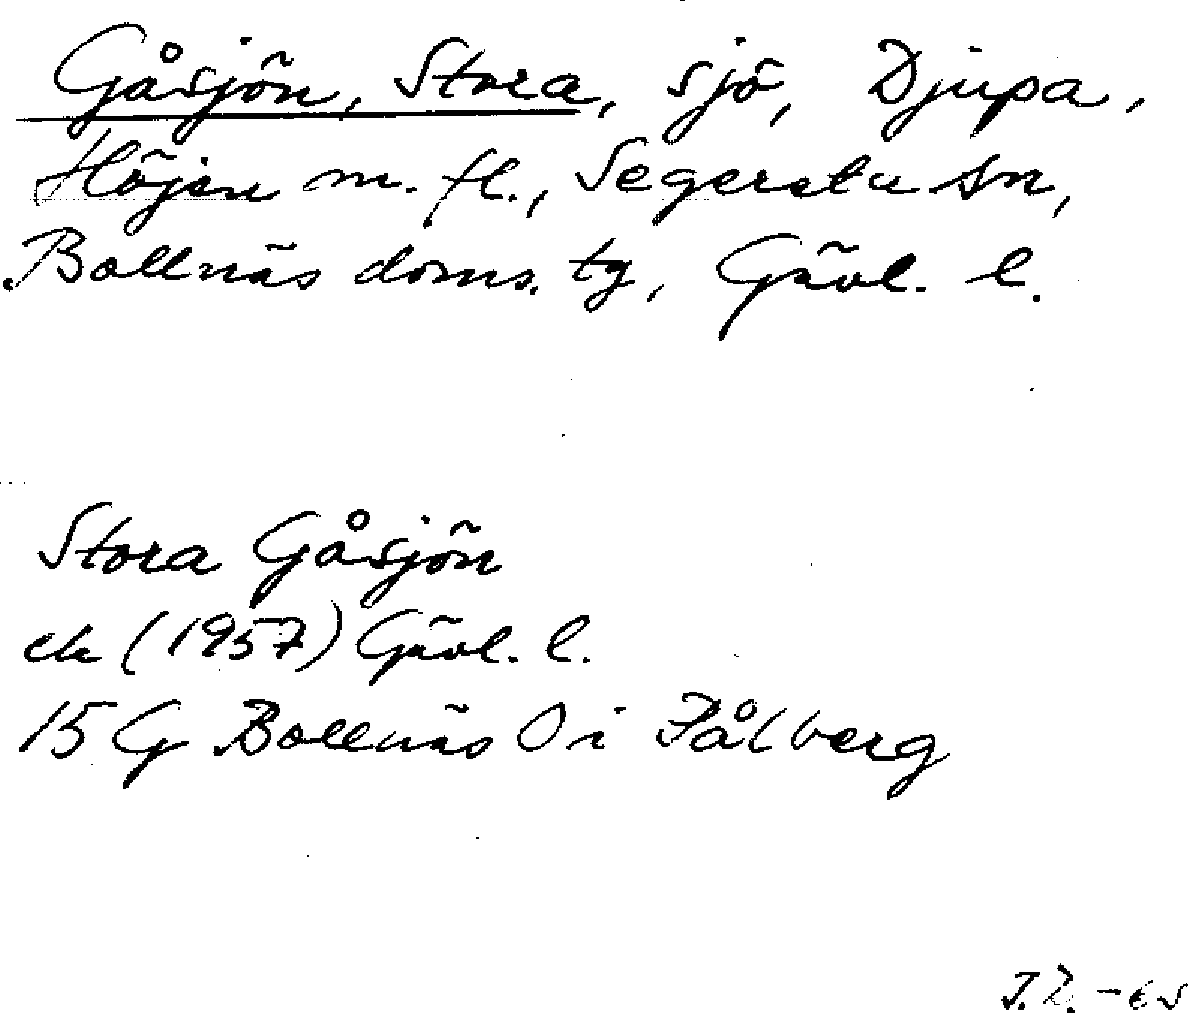 Gåsjön, Stora, sjö, Djupa,
Höjen m. fl., Segersta sn,
Bollnäs doms. tg, Gävl. l.
Stora Gåsjön
ek (1957) Gävl. l.
15 G Bollnäs 0 i Pålberg